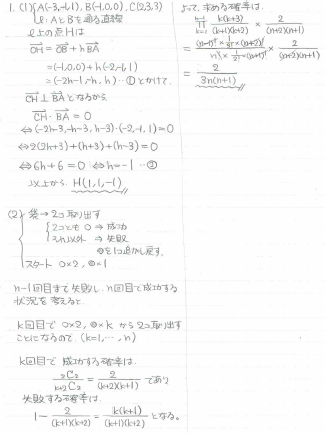 1. (1) A(-3,-1,1), B(-1,0,0), C(2,3,3)
ℓ: AとBを通る直線
ℓ上の点Hは
OH = OB + hBA
=(-1,0,0) + h(-2,-1,1)
=(-2h-1, -h, h) …① とかけて、
CH⊥BAとなるから
CH・BA = 0
⇔(-2h-3,-h-3,h-3)・(-2,-1,1)=0
⇔2(2h+3)+(h+3)+(h-3)=0
⇔6h+6=0 ⇔h=-1 …②
以上から H(1,1,-1)
(2) 袋→2コ取り出す
2コとも○ → 成功
それ以外 → 失敗
を1コ追加し戻す。
スタート ○×2,
×1
n-1回目まで失敗し、n回目で成功する
状況を考えると
k回目で ○×2,
×k から2コ取り出す
ことになるので (k=1, …, n)
k回目で成功する確率は
2C2 / k+2C2 = 2 / (k+2)(k+1) であり
失敗する確率は
1 - 2 / (k+1)(k+2) = k(k+3) / (k+1)(k+2) となる。
よって、求める確率は
k(k+3) / (k+1)(k+2) × 2 / (n+2)(n+1)
= 2 / 3n(n+1)